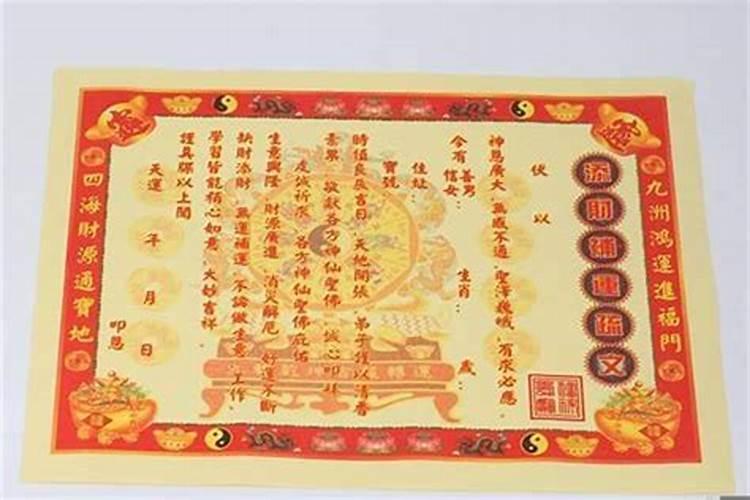 九洲鴻運進福門
添財補運疏文
伏以
神恩廣大 無感不通 聖澤巍峨 有求必應
今有 善男 信女： 生肖： 歲：
住址：
寶號
時值良辰吉日 天地開張 弟子謹以清香
素果 敬獻各方神仙聖佛 誠心叩拜
虔誠祈求 各方神仙聖佛庇佑
生意興隆 財源廣進 消災解厄 好運不斷
缺財添財 無運補運 不論做生意、工作、
學習皆能稱心如意 大妙吉祥
謹具疏以上聞
天運 年 月 日
叩恩
四海財源通寶地